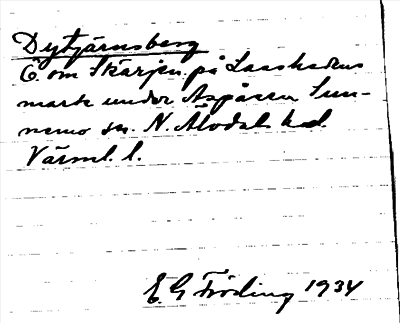 Dytjärnsberg
Ö. om Skärjen, på Laaskedens
mark under Aspåsen, Sun-
nemo sn. N. Älvdals hd.
Värml. l.
E. G. Fröding 1934